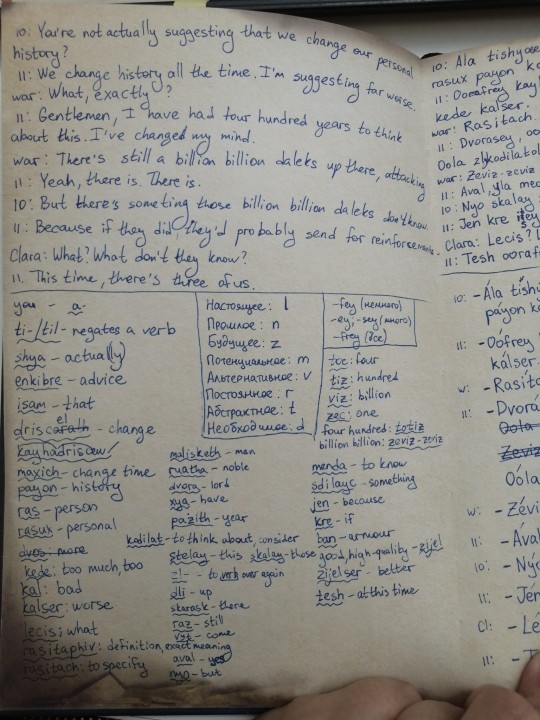 10: You're not actually suggesting that we change our personal
history?
11: We change history all the time. I'm suggesting far worse.
war: What, exactly?
11: Gentlemen, I have had four hundred years to think
about this. I've changed my mind.
war: There's still a billion billion daleks up there, attacking
11: Yeah, there is. There is.
10: But there's someting those billion billion daleks don't know.
11: Because if they did, they'd probably send for reinforsements.
Clara: What? What don't they know?
11. This time, there's three of us.
you - a-
ti-/til- negates a verb
shya - actual(ly)
enkibre - advice
isam - that
- change
kayhadrisaw
maxich - change time
payon - history
ras - person
rasux - personal
dvos: more
kede: too much, too
kal: bad
kalser: worse
lecis: what
rasitaphiv: definition, exact meaning
rasitach: to specify
Настоящее: l
Прошлое: n
Будущее: z
Потенциальное: m
Альтернативное: v
Постоянное: r
Абстрактное: t
Необходимое: d
malisketh - man
ruatha - noble
dvora - lord
xyg - have
pazith - year
kadilat - to think about, consider
stelay - this skalay - those
-l- - to verb over again
oli - up
starask - there
raz - still
vyt - come
aval - yes
nyo - but
-fey (немного)
-ey; -sey (много)
-frey (Все)
toc: four
tiz: hundred
viz: billion
zec: one
four hundred: totiz
billion billion: zeviz-zcviz
menda - to know
sdilayc - something
jen - because
kre - if
ban - armour
good, high-quality - zijel
zijelser - better
tesh - at this time
10: Ala tishyo
rasux payon
11: Oorafrey kay
kede kalser.
war: Rasitach.
11: Dvorasey,
Oola
war: Zeviz-zcviz
11: Aval, yla
10: Nyo skalay
11: Jen kre
Clara: Lecis?
11: Tesh
10: - Ála
páyon
11: - Oófrey
kálser.
w: - Rasíta
11: - Dvorá
Oola
Zeviz
Oóla
w: - Zévi
11: - Ával
10: - Nyó
11: - Jén
Cl: - Lé
11: